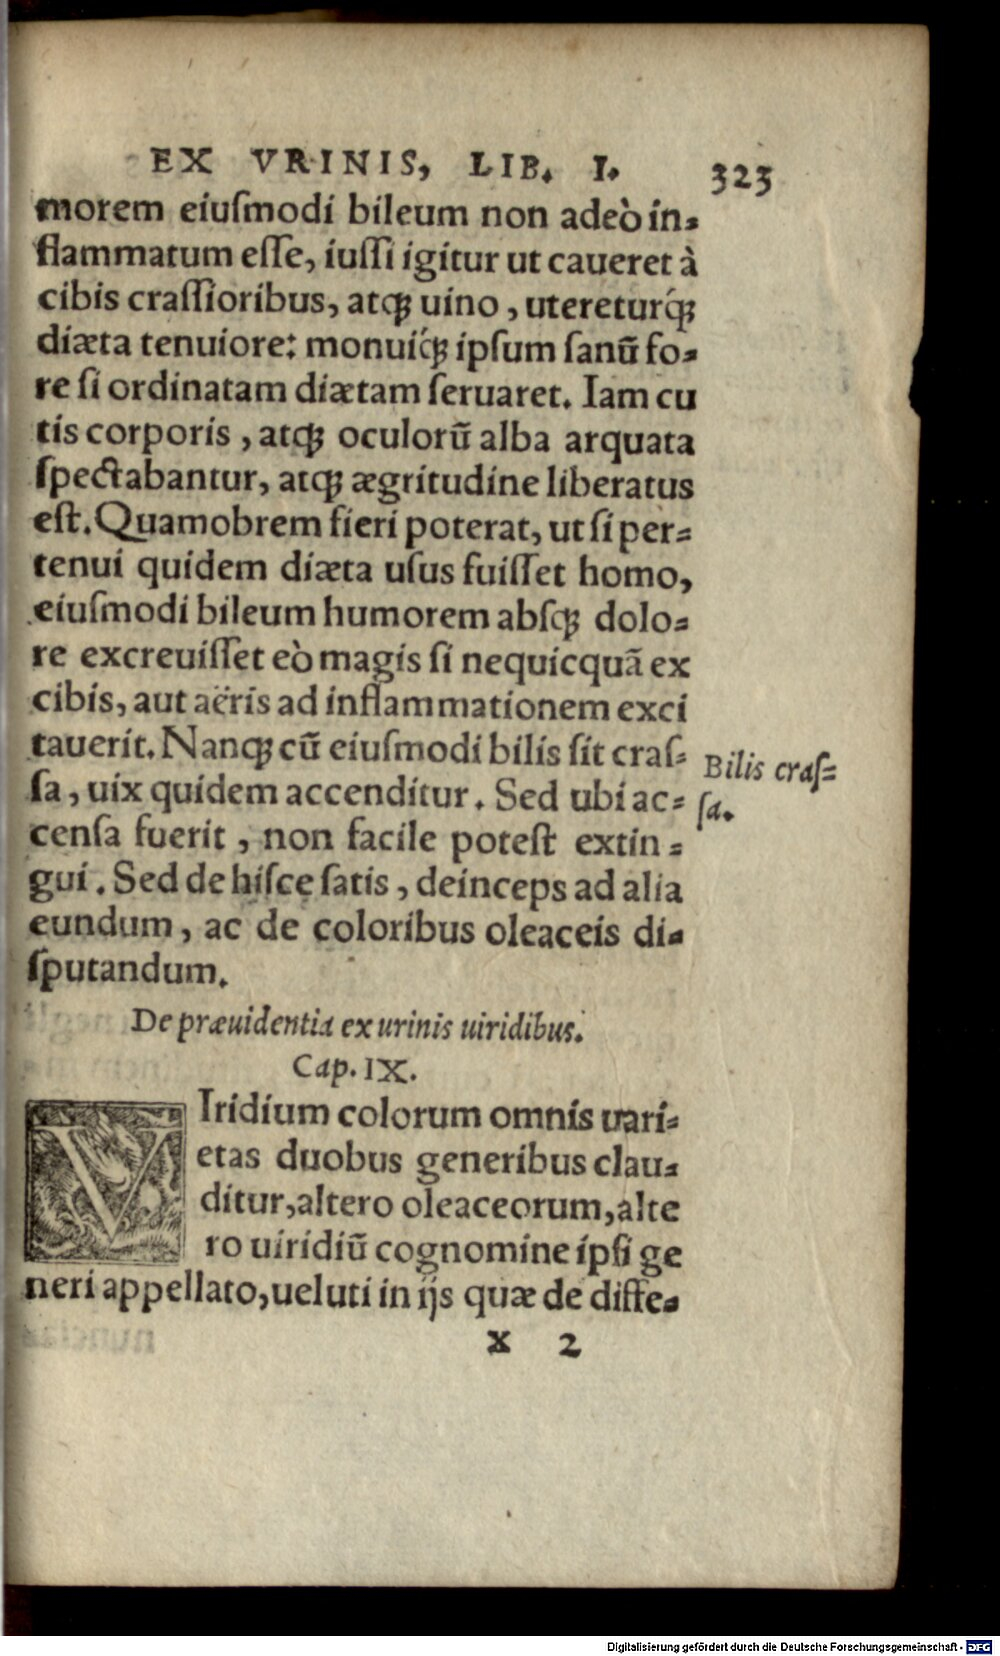 EX VRINIS, LIB. I. 323
morem eiuſmodi bileum non adeò in-
flammatum eſſe, iuſſi igitur ut caueret à
cibis craſſioribus, atq́; uino, utereturq́;
diæta tenuiore: monuiq́; ipſum ſanũ fo-
re ſi ordinatam diætam ſeruaret. Iam cu
tis corporis, atq; oculorũ alba arquata
ſpectabantur, atq; ægritudine liberatus
eſt. Quamobrem fieri poterat, ut ſi per-
tenui quidem diæta uſus fuiſſet homo,
eiuſmodi bileum humorem abſq; dolo-
re excreuiſſet eò magis ſi nequicquã ex
cibis, aut aëris ad inflammationem exci
tauerit. Nanq; cũ eiuſmodi bilis ſit craſ-
ſa, uix quidem accenditur. Sed ubi ac-
cenſa fuerit, non facile poteſt extin-
gui. Sed de hiſce ſatis, deinceps ad alia
eundum, ac de coloribus oleaceis di-
ſputandum.
Bilis craſ-
ſa.
De præuidentia ex urinis uiridibus.
Cap. IX.
VIridium colorum omnis uari-
etas duobus generibus clau-
ditur, altero oleaceorum, alte
ro uiridiũ cognomine ipſi ge
neri appellato, ueluti in ijs quæ de diffe-
X 2
Digitalisierung gefördert durch die Deutsche Forschungsgemeinschaft - DFG